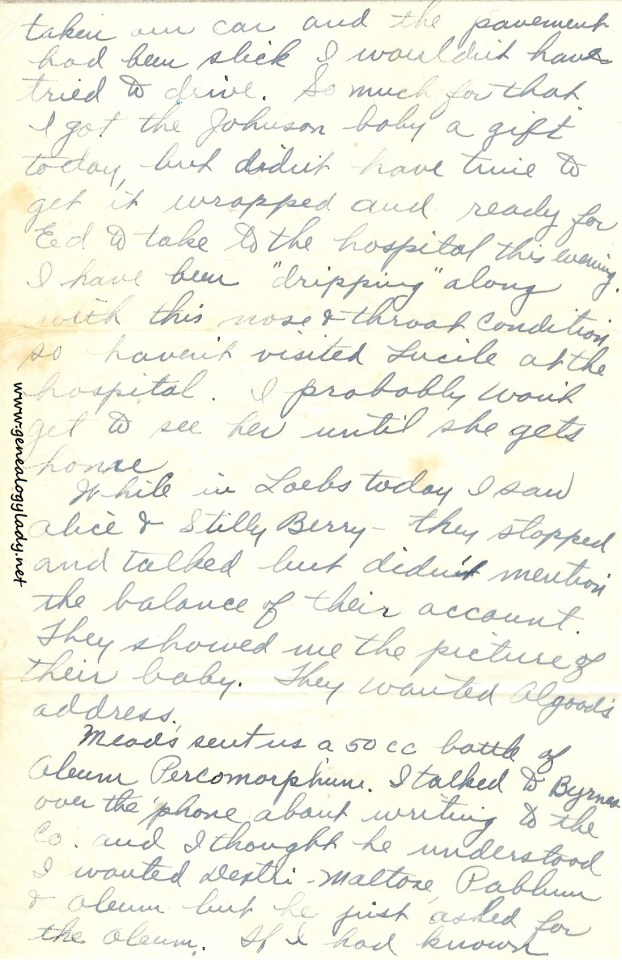 taken our car and the pavement
had been slick I wouldn't have
tried to drive. So much for that.
I got the Johnson baby a gift
today, but didn't have time to
get it wrapped and ready for
Ed to take to the hospital this evening.
I have been "dripping" along
with this nose & throat condition,
so haven't visited Lucile at the
hospital. I probably won't
get to see her until she gets
home
While in Loebs today I saw
Alice & Stilly Berry - they stopped
and talked but didn't mention
the balance of their account.
They showed me the picture of
their baby. They wanted Algood's
address.
Mead's sent us a 50 cc bottle of
Oleum Percomorphum. I talked to Byrnes
over the 'phone about writing to the
Co. and I thought he understood
I wanted Dextri-Maltose, Pablum
& Oleum but he just asked for
the Oleum. If I had known
www.genealogylady.net